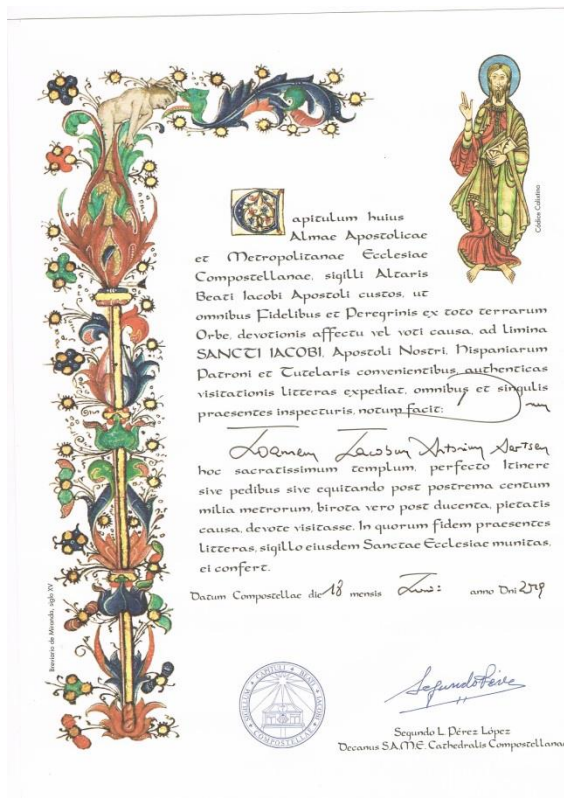 Códice Calixtino
Capitulum huius
Almae Apostolicae
et Metropolitanae Ecclesiae
Compostellanae, sigilli Altaris
Beati Iacobi Apostoli custos, ut
omnibus Fidelibus et Peregrinis ex toto terrarum
Orbe, devotionis affectu vel voti causa, ad limina
SANCTI IACOBI, Apostoli Nostri, Hispaniarum
Patroni et Tutelaris convenientibus, authenticas
visitationis litteras expediat, omnibus et singulis
praesentes inspecturis, notum facit:
Ioannem Iacobum Antonium Aartsen
hoc sacratissimum templum, perfecto Itinere
sive pedibus sive equitando post postrema centum
milia metrorum, birota vero post ducenta, pietatis
causa, devote visitasse. In quorum fidem praesentes
litteras, sigillo eiusdem Sanctae Ecclesiae munitas,
ei confert.
Datum Compostellae die 18 mensis anno Dni 2019
Breviario de Miranda, siglo XV
SIGILLUM CAPITULI BEATI JACOBI COMPOSTELLAE
Segundo L. Pérez López
Decanus S.A.M.E. Cathedralis Compostellanae